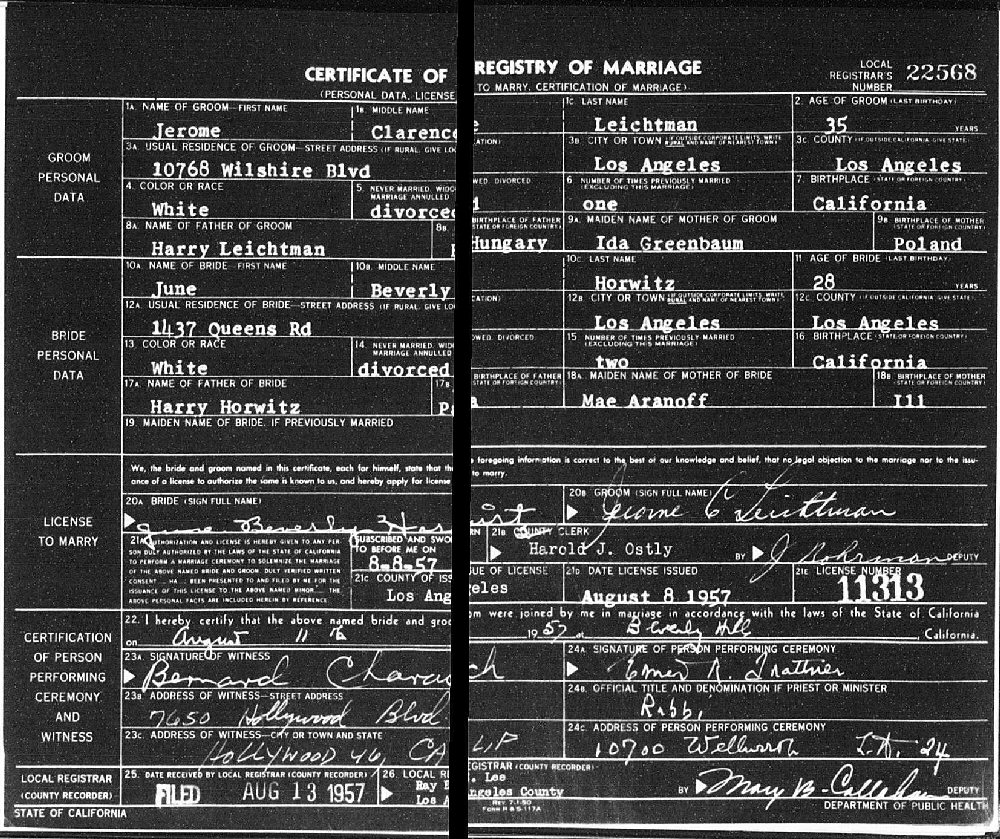 CERTIFICATE OF REGISTRY OF MARRIAGE
LOCAL REGISTRAR'S NUMBER 22568
(PERSONAL DATA, LICENSE TO MARRY, CERTIFICATION OF MARRIAGE)
GROOM PERSONAL DATA
1A. NAME OF GROOM—FIRST NAME 1B. MIDDLE NAME 1C. LAST NAME 2. AGE OF GROOM (LAST BIRTHDAY)
Jerome Clarence Leichtman 35 YEARS
3A. USUAL RESIDENCE OF GROOM—STREET ADDRESS (IF RURAL, GIVE LOCATION) 3B. CITY OR TOWN 3C. COUNTY (IF OUTSIDE CALIFORNIA GIVE STATE)
10768 Wilshire Blvd Los Angeles Los Angeles
4. COLOR OR RACE 5. NEVER MARRIED, WIDOWED, DIVORCED MARRIAGE ANNULLED 6. NUMBER OF TIMES PREVIOUSLY MARRIED (EXCLUDING THIS MARRIAGE) 7. BIRTHPLACE (STATE OR FOREIGN COUNTRY)
White divorced one California
8A. NAME OF FATHER OF GROOM 8B. BIRTHPLACE OF FATHER (STATE OR FOREIGN COUNTRY) 9A. MAIDEN NAME OF MOTHER OF GROOM 9B. BIRTHPLACE OF MOTHER (STATE OR FOREIGN COUNTRY)
Harry Leichtman Hungary Ida Greenbaum Poland
BRIDE PERSONAL DATA
10A. NAME OF BRIDE—FIRST NAME 10B. MIDDLE NAME 10C. LAST NAME 11. AGE OF BRIDE (LAST BIRTHDAY)
June Beverly Horwitz 28 YEARS
12A. USUAL RESIDENCE OF BRIDE—STREET ADDRESS (IF RURAL, GIVE LOCATION) 12B. CITY OR TOWN 12C. COUNTY (IF OUTSIDE CALIFORNIA GIVE STATE)
1437 Queens Rd Los Angeles Los Angeles
13. COLOR OR RACE 14. NEVER MARRIED, WIDOWED, DIVORCED MARRIAGE ANNULLED 15. NUMBER OF TIMES PREVIOUSLY MARRIED (EXCLUDING THIS MARRIAGE) 16. BIRTHPLACE (STATE OR FOREIGN COUNTRY)
White divorced two California
17A. NAME OF FATHER OF BRIDE 17B. BIRTHPLACE OF FATHER (STATE OR FOREIGN COUNTRY) 18A. MAIDEN NAME OF MOTHER OF BRIDE 18B. BIRTHPLACE OF MOTHER (STATE OR FOREIGN COUNTRY)
Harry Horwitz Mae Aranoff Ill
19. MAIDEN NAME OF BRIDE, IF PREVIOUSLY MARRIED
LICENSE TO MARRY
We, the bride and groom named in this certificate, each for himself, state that the foregoing information is correct to the best of our knowledge and belief, that no legal objection to the marriage nor to the issu-
ance of a license to authorize the same is known to us, and hereby apply for license to marry.
20A. BRIDE (SIGN FULL NAME) 20B. GROOM (SIGN FULL NAME)
June Beverly Jerome C Leichtman
21A. AUTHORIZATION AND LICENSE IS HEREBY GIVEN TO ANY PER-
SON DULY AUTHORIZED BY THE LAWS OF THE STATE OF CALIFORNIA
TO PERFORM A MARRIAGE CEREMONY TO SOLEMNIZE THE MARRIAGE
OF THE ABOVE NAMED BRIDE AND GROOM. DULY VERIFIED WRITTEN
CONSENT HA BEEN PRESENTED TO AND FILED BY ME FOR THE
ISSUANCE OF THIS LICENSE TO THE ABOVE NAMED MINOR THE
ABOVE PERSONAL FACTS ARE INCLUDED HEREIN BY REFERENCE
SUBSCRIBED AND SWORN TO BEFORE ME ON
8-8-57
21B. COUNTY CLERK
Harold J. Ostly BY J DEPUTY
21C. COUNTY OF ISSUE OF LICENSE 21D. DATE LICENSE ISSUED 21E. LICENSE NUMBER
Los Angeles August 8 1957 11313
CERTIFICATION OF PERSON PERFORMING CEREMONY AND WITNESS
22. I hereby certify that the above named bride and groom were joined by me in marriage in accordance with the laws of the State of California
on August 11 th 1957 at Beverly Hills, California.
23A. SIGNATURE OF WITNESS 24A. SIGNATURE OF PERSON PERFORMING CEREMONY
Bernard
23B. ADDRESS OF WITNESS—STREET ADDRESS 24B. OFFICIAL TITLE AND DENOMINATION IF PRIEST OR MINISTER
7650 Hollywood Blvd Rabbi
23C. ADDRESS OF WITNESS—CITY OR TOWN AND STATE 24C. ADDRESS OF PERSON PERFORMING CEREMONY
HOLLYWOOD 46, CALIF 10700 L.A. 24
LOCAL REGISTRAR (COUNTY RECORDER)
25. DATE RECEIVED BY LOCAL REGISTRAR (COUNTY RECORDER) 26. LOCAL REGISTRAR (COUNTY RECORDER)
FILED AUG 13 1957 Ray E. Lee
Los Angeles County BY Mary B. Callahan DEPUTY
STATE OF CALIFORNIA
REV. 7-1-50
DEPARTMENT OF PUBLIC HEALTH